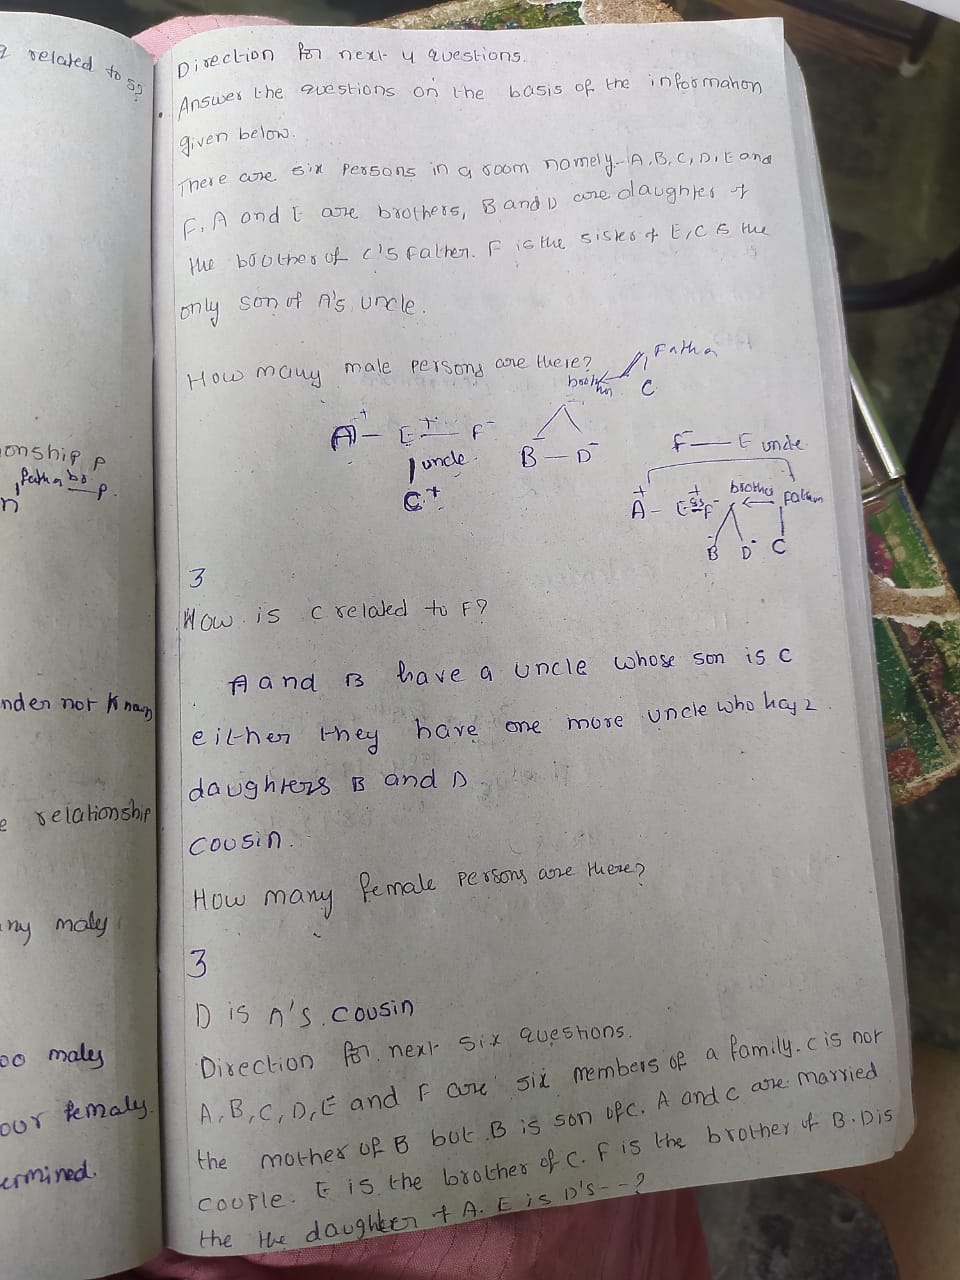 2 related to s?
onship P
n
nder not Known
e relationship
ny males
oo males
our females.
ermined.
Direction for next 4 questions.
Answer the questions on the basis of the information
given below.
There are six persons in a room namely-A,B,C,D,E and
F. A and E are brothers, B and D are daughter of
the brother of C's Father. F is the sister of E, C is the
only son of A's uncle.
How many male persons are there?
Father
brother
C
A+ — E+ — F-
uncle
C+
B- — D-
F — E uncle
A+ - E+ F-
brother father
B- D- C
3
How is C related to F?
A and B have a uncle whose son is C
either they have one more uncle who has 2
daughters B and D
cousin.
How many female persons are there?
3
D is A's cousin
Direction for next six questions.
A,B,C,D,E and F are six members of a family. C is not
the mother of B but B is son of C. A and C are married
couple. E is the brother of C. F is the brother of B. D is
the the daughter of A. E is D's--?